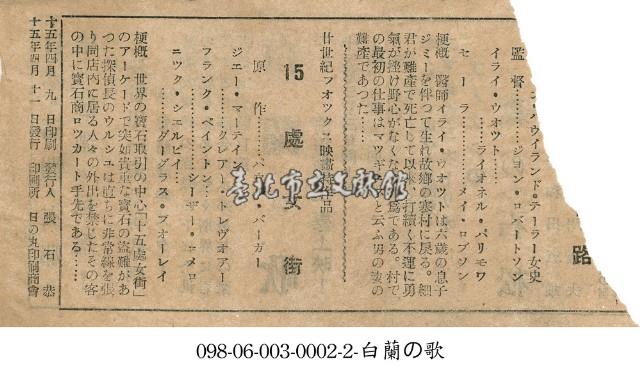 路
・ハウイランド・テーラー女史
監督………ジョン・ロバートソン
イライ・ウオツト……
………ライオネル・バリモワ
セーラ………メイ・ロブソン
梗概 醫師イライ・ウオツトは六歳の息子
ジミーを伴つて生れ故鄕の寒村に戻る。細
君が難產で死亡して以來、打續く不運に勇
氣が挫け野心がなくな
爲である。村で
の最初の仕事はマツギ
と云ふ男の妻の
難產であつた……
廿世紀フオツクス映畫
品
15處女街
原作
バーガー
ジエー・マーテイン
………クレアー・トレヴオアー
フランク・ペイントン
シーザー・ロメロ
ニツク・シエルビイ
………ダーグラス・フオーレイ
梗概 世界の寶石取引の中心「十五處女街」
のアーケードで突如貴重な寶石の盜難があ
つた探偵長のウルシユは直ちに非常線を張
り同店內に居る人々の外出を禁じたその客
の中に寶石商ロツカート手先である……
十五年四月九日印刷 發行人 張石恭
十五年四月十一日發行 印刷所 日の丸印刷商會
臺北市立文獻館
098-06-003-0002-2-白蘭の歌